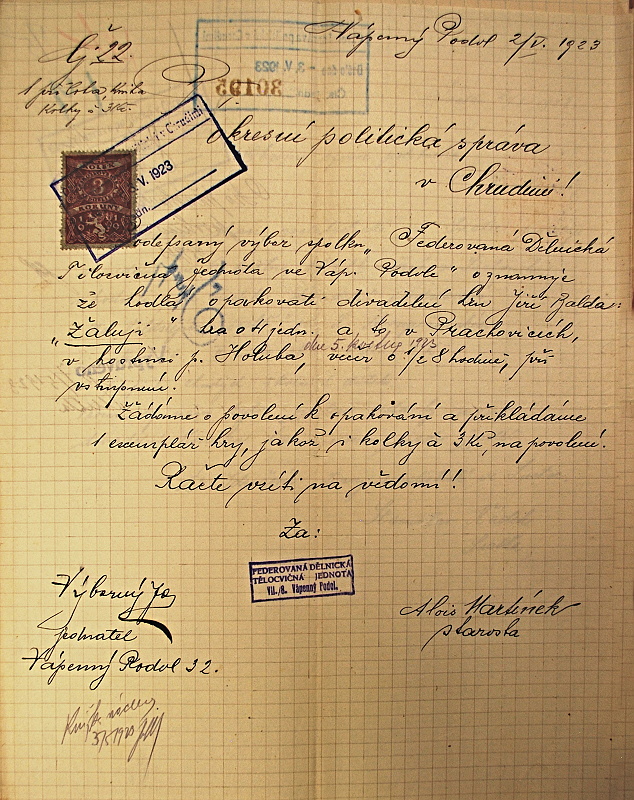 Vápenný Podol 2/V. 1923
Čj 22.
1 příloha, kniha
Kolky á 3 Kč.
3. V. 1923
30195
V. 1923
3
KORUNY
Okresní politická správa
v Chrudimi!
Podepsaný výbor spolku „Federovaná Dělnická
Tělocvičná Jednota ve Váp. Podole“ oznamuje
že hodlá opakovati divadelní hru Jiří Balda:
„Žaluji“ hra o 4 jedn. a to, v Prachovicích,
dne 5. května 1923
v hostinci p. Holuba, večer o 1/2 8 hodině, při
vstupném.
Žádáme o povolení k opakování a přikládáme
1 exemplár hry, jakož i kolky à 3 Kč, na povolení.
Račte vzíti na vědomí!!
Za:
FEDEROVANÁ DĚLNICKÁ
TĚLOCVIČNÁ JEDNOTA
VII./8. Vápenný Podol.
Výborný Jo
jednatel
Vápenný Podol 32.
Alois Martínek
starosta
3/5 1923